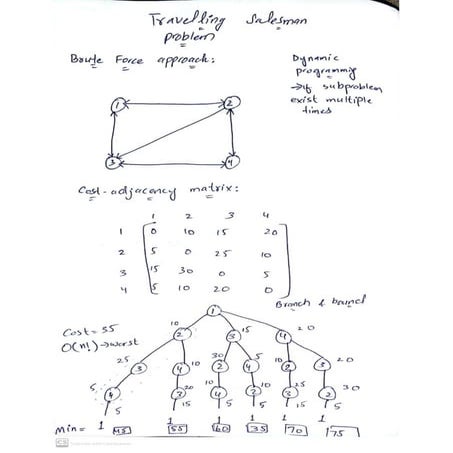 Travelling Salesman
problem
Boute Force approach:
Dynamic
programming
→ if subproblem
exist multiple
times
1 2
3 4
Cost-adjacency matrix:
1 2 3 4
1 0 10 15 20
2 5 0 25 10
3 15 30 0 5
4 5 10 20 0
Branch & bound
1
10 15 20
Cost = 35
2 3 4
O(n!) → worst
25 10 30 5 10 20
3 4 2 4 2 3
5 20 10 10 25 30
4 3 4 2 3 2
5 15 5 5 15 5
Min = 1 1 1 1 1 1
45 55 60 35 70 75